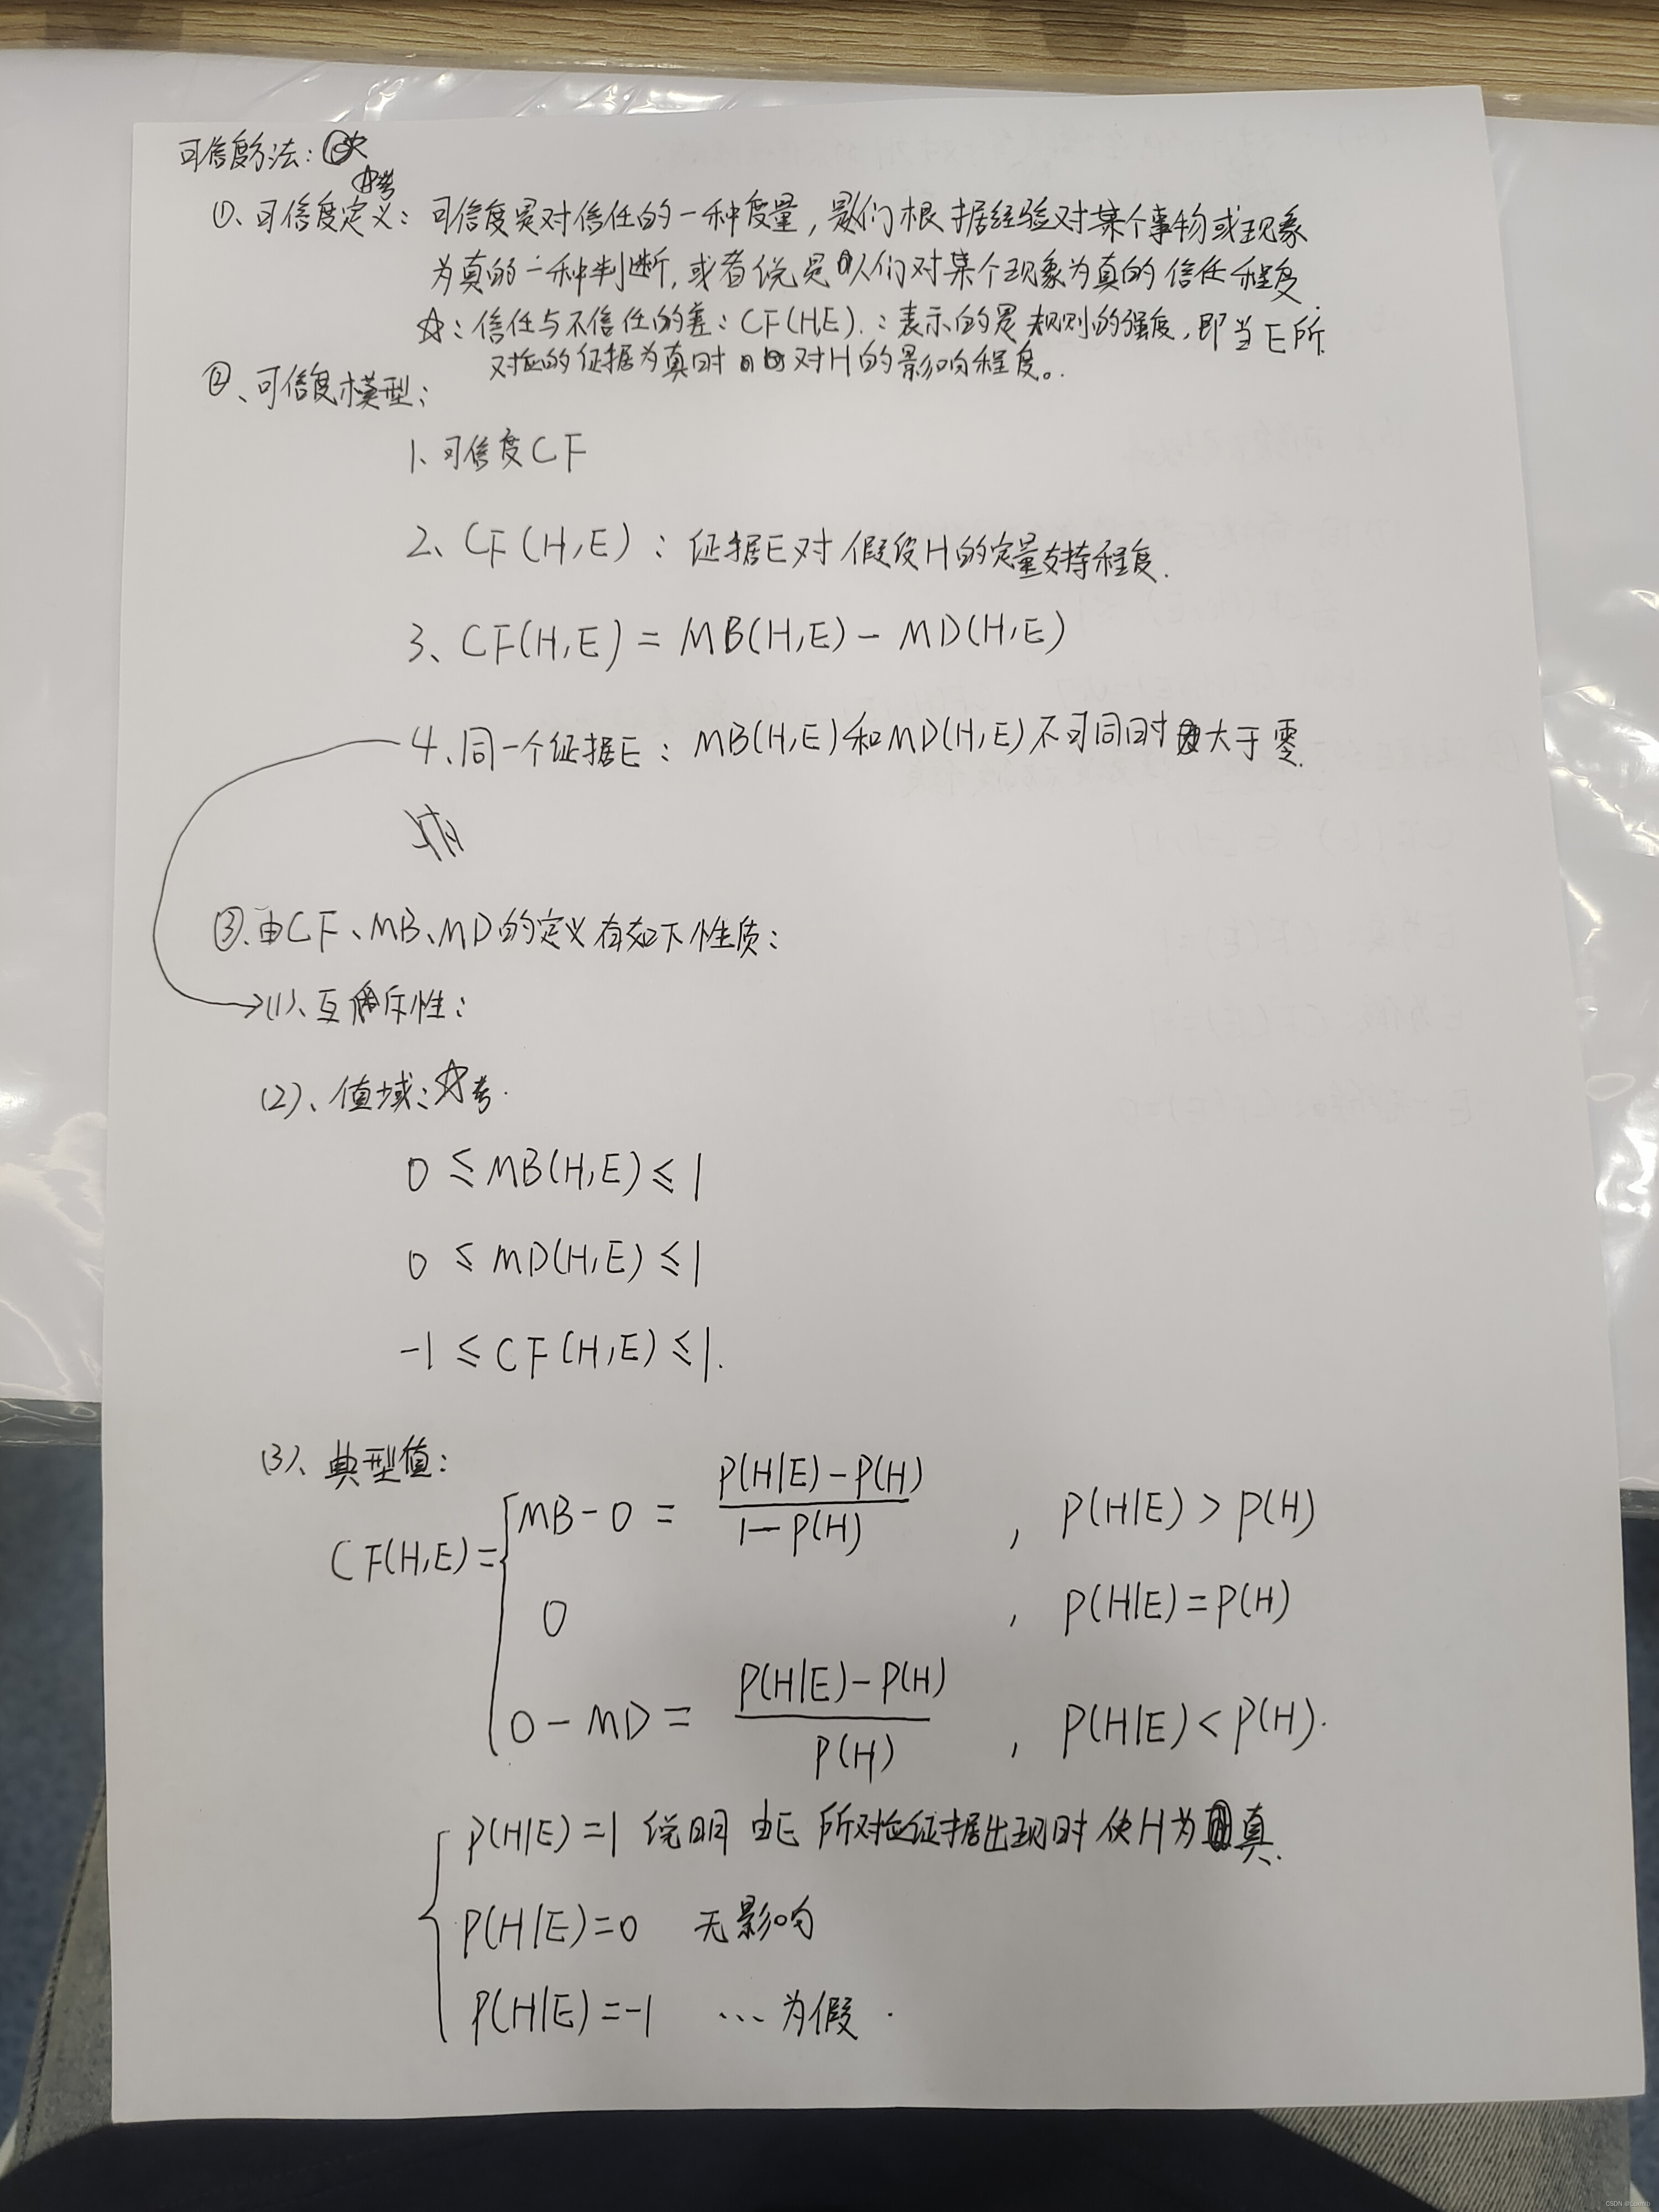 可信度方法:
☆考
①、可信度定义: 可信度是对信任的一种度量,是人们根据经验对某个事物或现象
为真的一种判断,或者说是人们对某个现象为真的信任程度
☆:信任与不信任的差:CF(H,E).:表示的是规则的强度,即当E所
对应的证据为真时对H的影响程度。
②、可信度模型:
1、可信度CF
2、CF(H,E):证据E对假设H的定量支持程度.
3、CF(H,E) = MB(H,E) - MD(H,E)
4、同一个证据E: MB(H,E)和MD(H,E)不可同时大于零.
③、由CF、MB、MD的定义有如下性质:
(1)、互斥性:
(2)、值域:☆考.
0 ≤ MB(H,E) ≤ 1
0 ≤ MD(H,E) ≤ 1
-1 ≤ CF(H,E) ≤ 1.
(3)、典型值:
CF(H,E) = { MB - 0 = (P(H|E) - P(H)) / (1 - P(H)) , P(H|E) > P(H)
0 , P(H|E) = P(H)
0 - MD = (P(H|E) - P(H)) / P(H) , P(H|E) < P(H).
{ P(H|E) = 1 说明由E所对应证据出现时使H为真.
P(H|E) = 0 无影响
P(H|E) = -1 ... 为假.